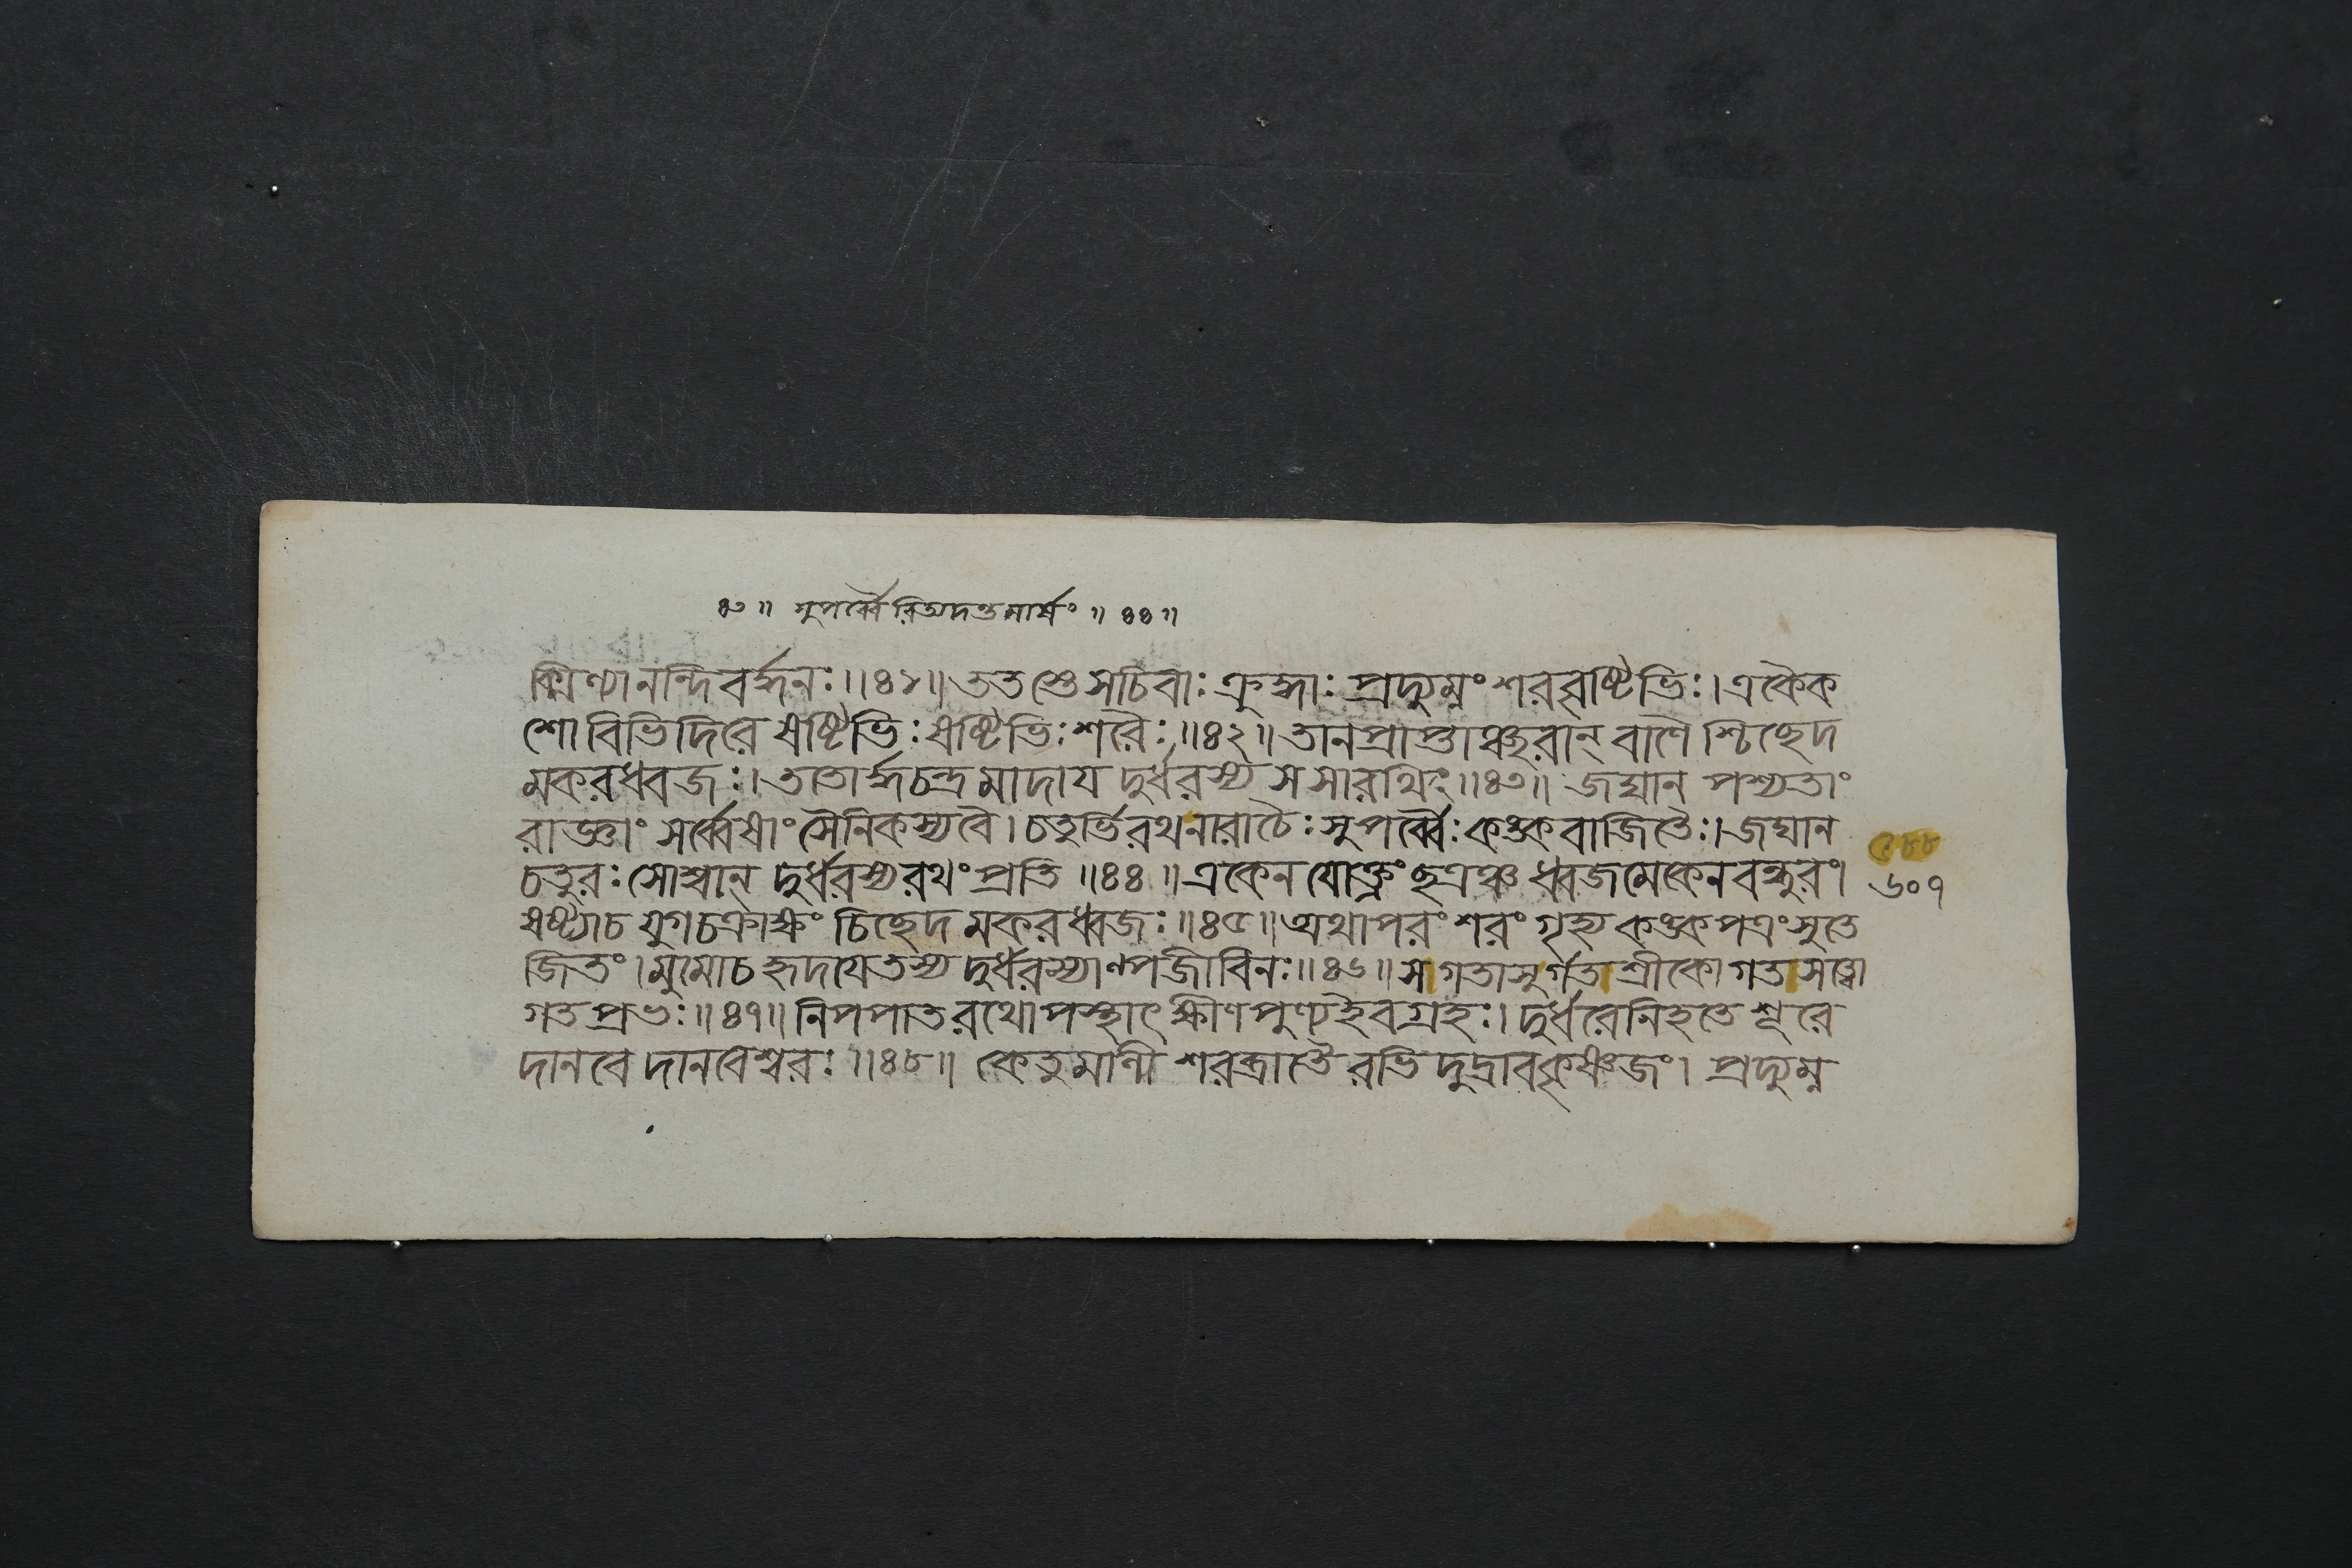 ৪৩ ॥ সুপর্ব্বৈরিত্যদন্তমার্ষং ॥ ৪৪ ॥
ক্মিণ্যানন্দিবর্দ্ধনঃ ॥ ৪১ ॥ ততস্তে সচিবাঃ ক্রুদ্ধাঃ প্রদ্যুম্নং শরবৃষ্টিভিঃ । একৈক
শো বিভিদিরে ষষ্টিভিঃ ষষ্টিভিঃ শরৈঃ ॥ ৪২ ॥ তানপ্রাপ্তাঞ্ছরান্ বাণৈশ্চিচ্ছেদ
মকরধ্বজঃ । ততোর্দ্ধচন্দ্রমাদায দুর্ধরস্য স সারথিং ॥ ৪৩ ॥ জঘান পশ্যতাং
রাজ্ঞাং সর্ব্বেষাং সৈনিকস্য বৈ । চতুর্ভিরথ নারাচৈঃ সুপর্ব্বৈঃ কঙ্কবাজিতৈঃ । জঘান
চতুরঃ সোশ্বান্ দুর্ধরস্য রথং প্রতি ॥ ৪৪ ॥ একেন যোক্ত্রং ছত্রঞ্চ ধ্বজমেকেন বন্ধুরং ।
ষষ্ট্যা চ যুগচক্রাক্ষং চিচ্ছেদ মকরধ্বজঃ ॥ ৪৫ ॥ অথাপরং শরং গৃহ্য কঙ্কপত্রং সুতে
জিতং । মুমোচ হৃদযে তস্য দুর্ধরস্যাণ্পজীবিনঃ ॥ ৪৬ ॥ স গতাসুর্গতশ্রীকো গতসত্ত্বো
গতপ্রভঃ ॥ ৪৭ ॥ নিপপাত রথোপস্থাৎ ক্ষীণপুণ্য ইব গ্রহঃ । দুর্ধরে নিহতে শূরে
দানবে দানবেশ্বরঃ ॥ ৪৮ ॥ কেতুমালী শরব্রাতৈরভিদুদ্রাব কৃষ্ণজং । প্রদ্যুম্ন
৫৮৮
৬০৭